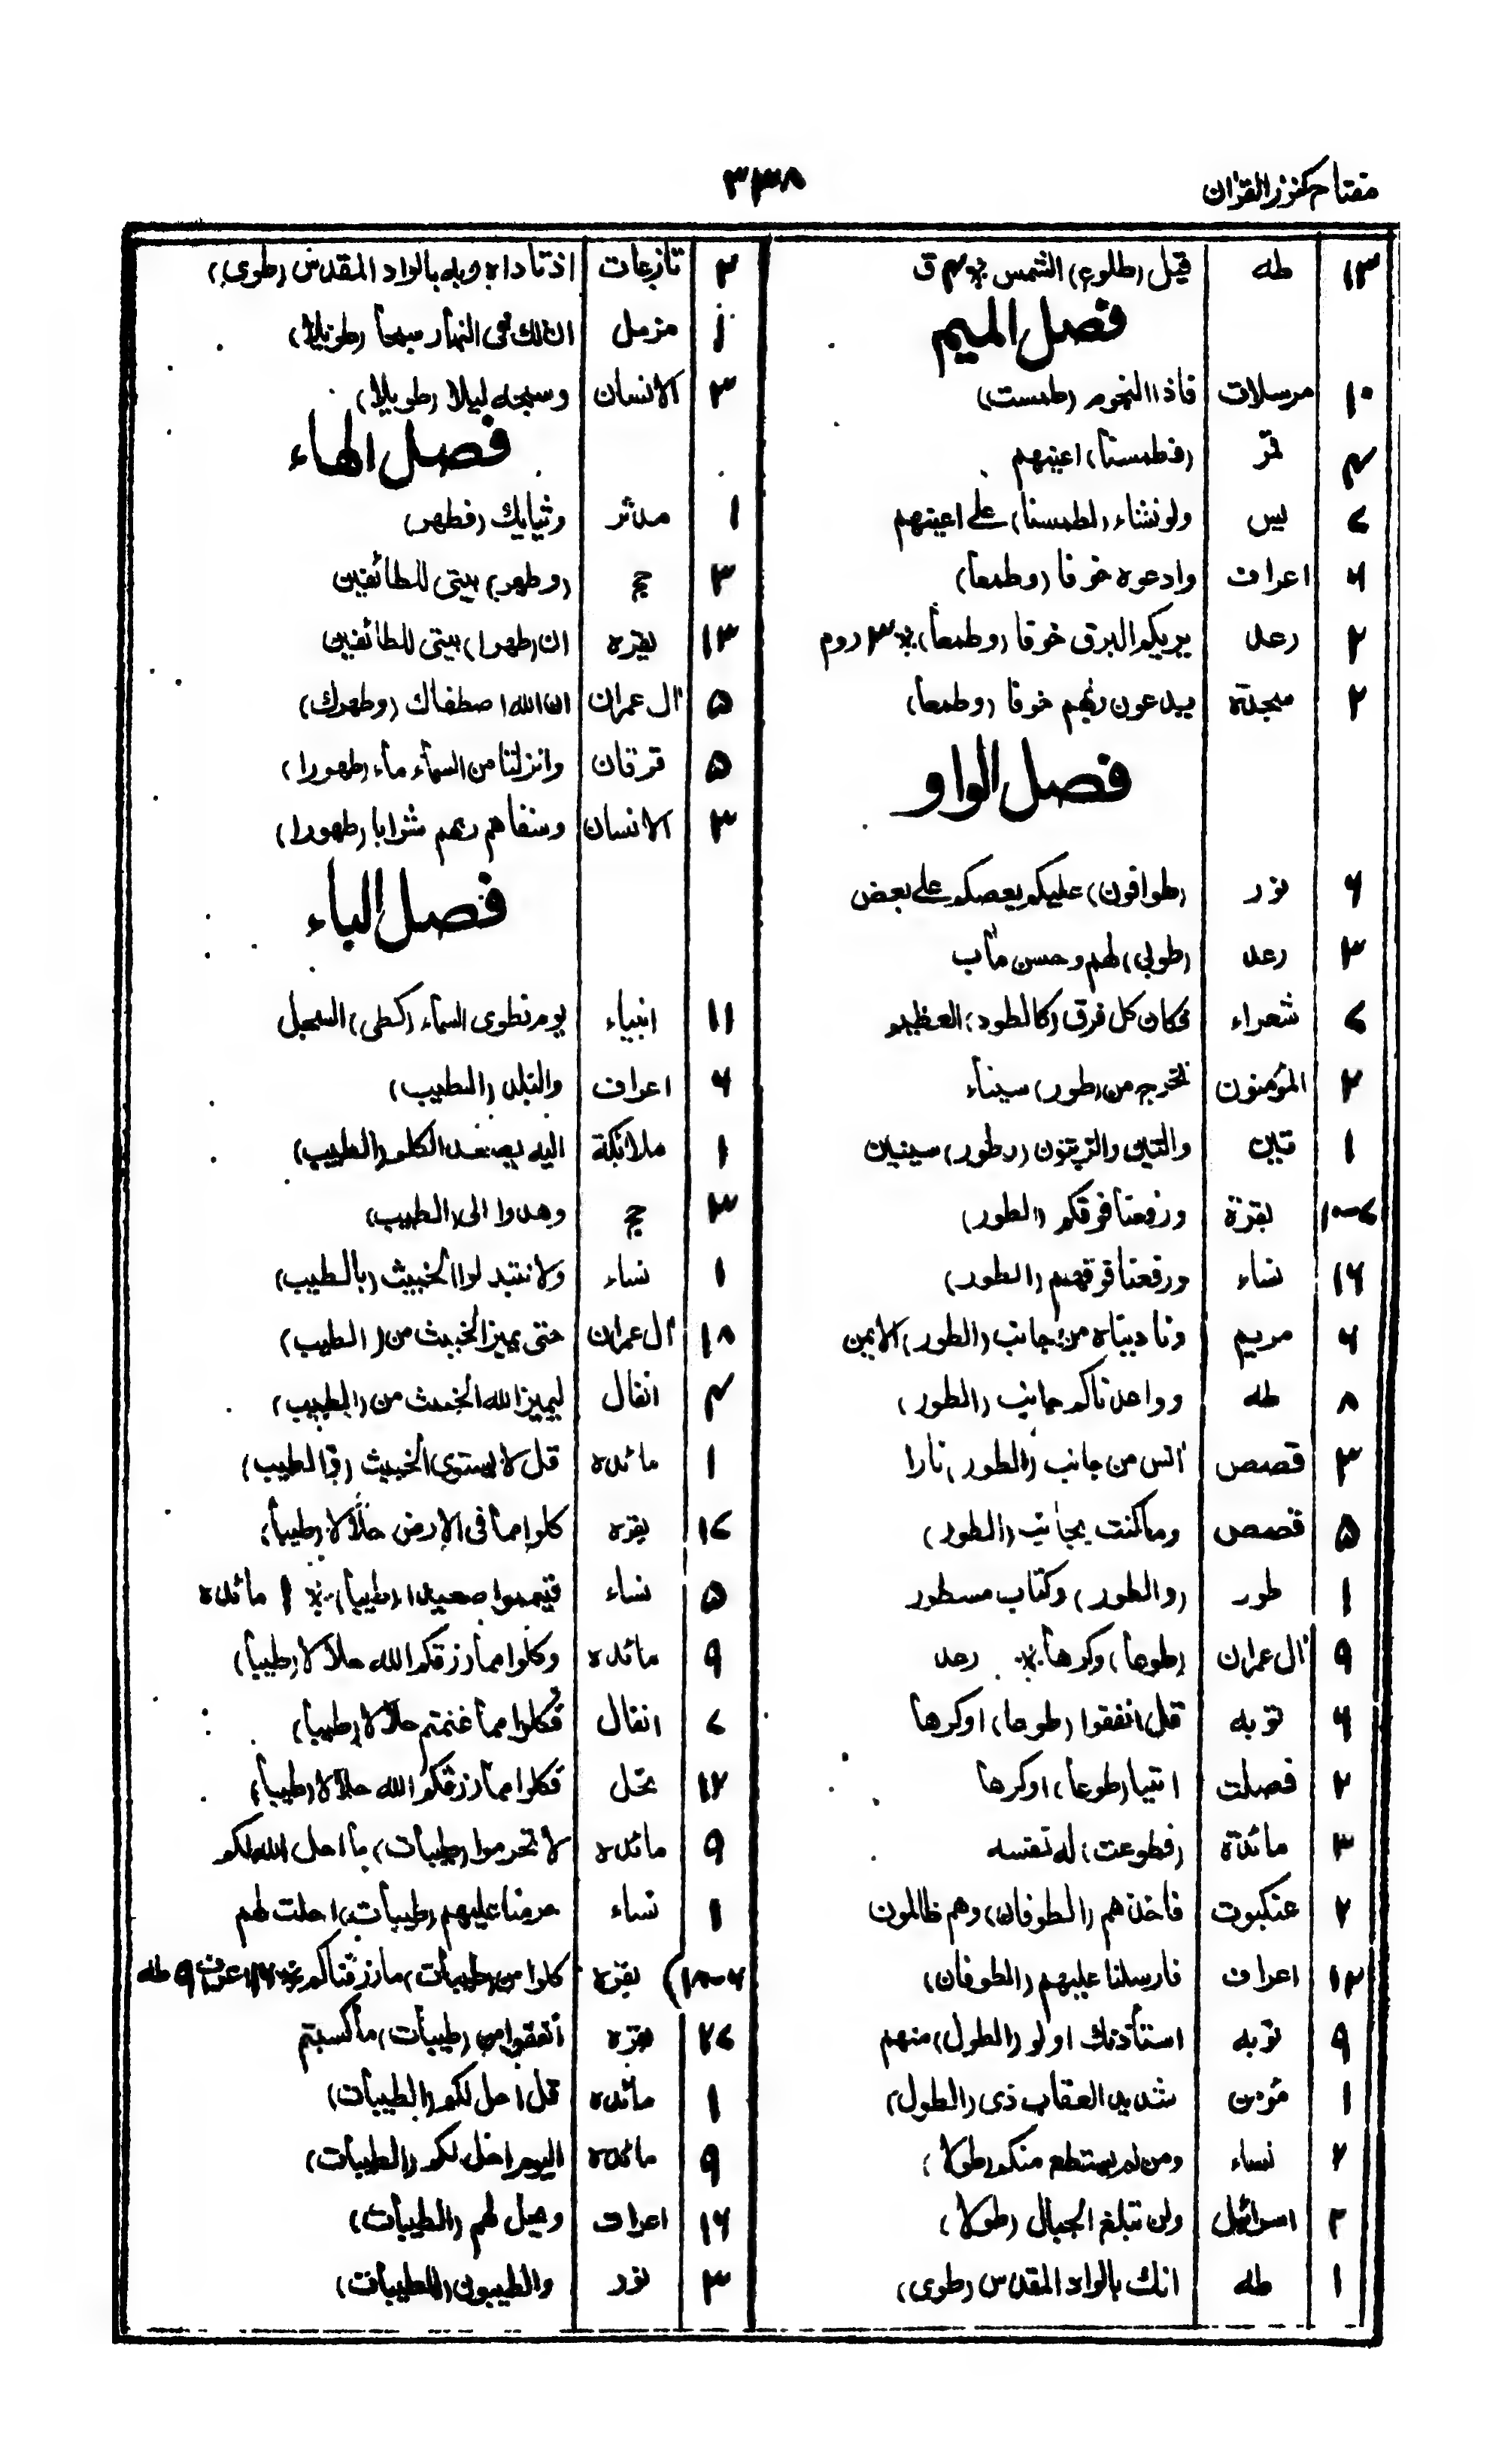 مفتاح کنوز القرآن
۳۳۸
۱۳ طه قبل (طلوع) الشمس ٪ ۳ ق
فصل المیم
۱۰ مرسلات فاذا النجوم (طمست)
۲ قمر (فطمسنا) اعینهم
۷ یس ولو نشاء (لطمسنا) علی اعینهم
۶ اعراف وادعوه خوفا (وطمعا)
۲ رعد یریکم البرق خوفا (وطمعا) ٪ ۳ روم
۲ سجدة یدعون ربهم خوفا (وطمعا)
فصل الواو
۶ نور (طوافون) علیکم بعضکم علی بعض
۳ رعد (طوبی) لهم وحسن مآب
۷ شعراء فکان کل فرق (کالطود) العظیم
۲ المؤمنون تخرج من (طور) سیناء
۱ تین والتین والزیتون (وطور) سینین
۷-۱۰ بقرة ورفعنا فوقکم (الطور)
۱۶ نساء ورفعنا فوقهم (الطور)
۶ مریم ونادیناه من جانب (الطور) الایمن
۸ طه وواعدناکم جانب (الطور)
۳ قصص آنس من جانب (الطور) نارا
۵ قصص وما کنت بجانب (الطور)
۱ طور (والطور) وکتاب مسطور
۹ آل عمران (طوعا) وکرها ٪ رعد
۶ توبه قل انفقوا (طوعا) اوکرها
۲ فصلت ائتیا (طوعا) اوکرها
۳ مائدة (فطوعت) له نفسه
۲ عنکبوت فاخذهم (الطوفان) وهم ظالمون
۱۲ اعراف فارسلنا علیهم (الطوفان)
۹ توبه استأذنک اولو (الطول) منهم
۱ مؤمن شدید العقاب ذی (الطول)
۲ نساء ومن لم یستطع منکم (طولا)
۲ اسرائیل ولن تبلغ الجبال (طولا)
۱ طه انک بالواد المقدس (طوی)
۲ نازعات اذ ناداه ربه بالواد المقدس (طوی)
۱ مزمل ان لک فی النهار سبحا (طویلا)
۳ الانسان وسبحه لیلا (طویلا)
فصل الهاء
۱ مدثر وثیابک (فطهر)
۳ حج (وطهر) بیتی للطائفین
۱۳ بقره ان (طهرا) بیتی للطائفین
۵ آل عمران ان الله اصطفاک (وطهرک)
۵ فرقان وانزلنا من السماء ماء (طهورا)
۳ الانسان وسقاهم ربهم شرابا (طهورا)
فصل الیاء
۱۱ انبیاء یوم نطوی السماء (کطی) السجل
۶ اعراف والبلد (الطیب)
۱ ملائکة الیه یصعد الکلم (الطیب)
۳ حج وهدوا الی (الطیب)
۱ نساء ولا تتبدلوا الخبیث (بالطیب)
۱۸ آل عمران حتی یمیز الخبیث من (الطیب)
۴ انفال لیمیز الله الخبیث من (الطیب)
۱ مائده قل لا یستوی الخبیث (والطیب)
۱۶ بقره کلوا مما فی الارض حلالا (طیبا)
۵ نساء فتیمموا صعیدا (طیبا) ٪ ۱ مائده
۹ مائده وکلوا مما رزقکم الله حلالا (طیبا)
۷ انفال فکلوا مما غنمتم حلالا (طیبا)
۱۲ نحل فکلوا مما رزقکم الله حلالا (طیبا)
۹ مائده لا تحرموا (طیبات) ما احل الله لکم
۱ نساء حرمنا علیهم (طیبات) احلت لهم
بقره کلوا من (طیبات) ما رزقناکم اعراف ۹ طه
۲۷ بقره أنفقوا من (طیبات) ما کسبتم
۱ مائده قل احل لکم (الطیبات)
۹ مائده الیوم احل لکم (الطیبات)
۱۶ اعراف ویحل لهم (الطیبات)
۳ نور والطیبون (للطیبات)